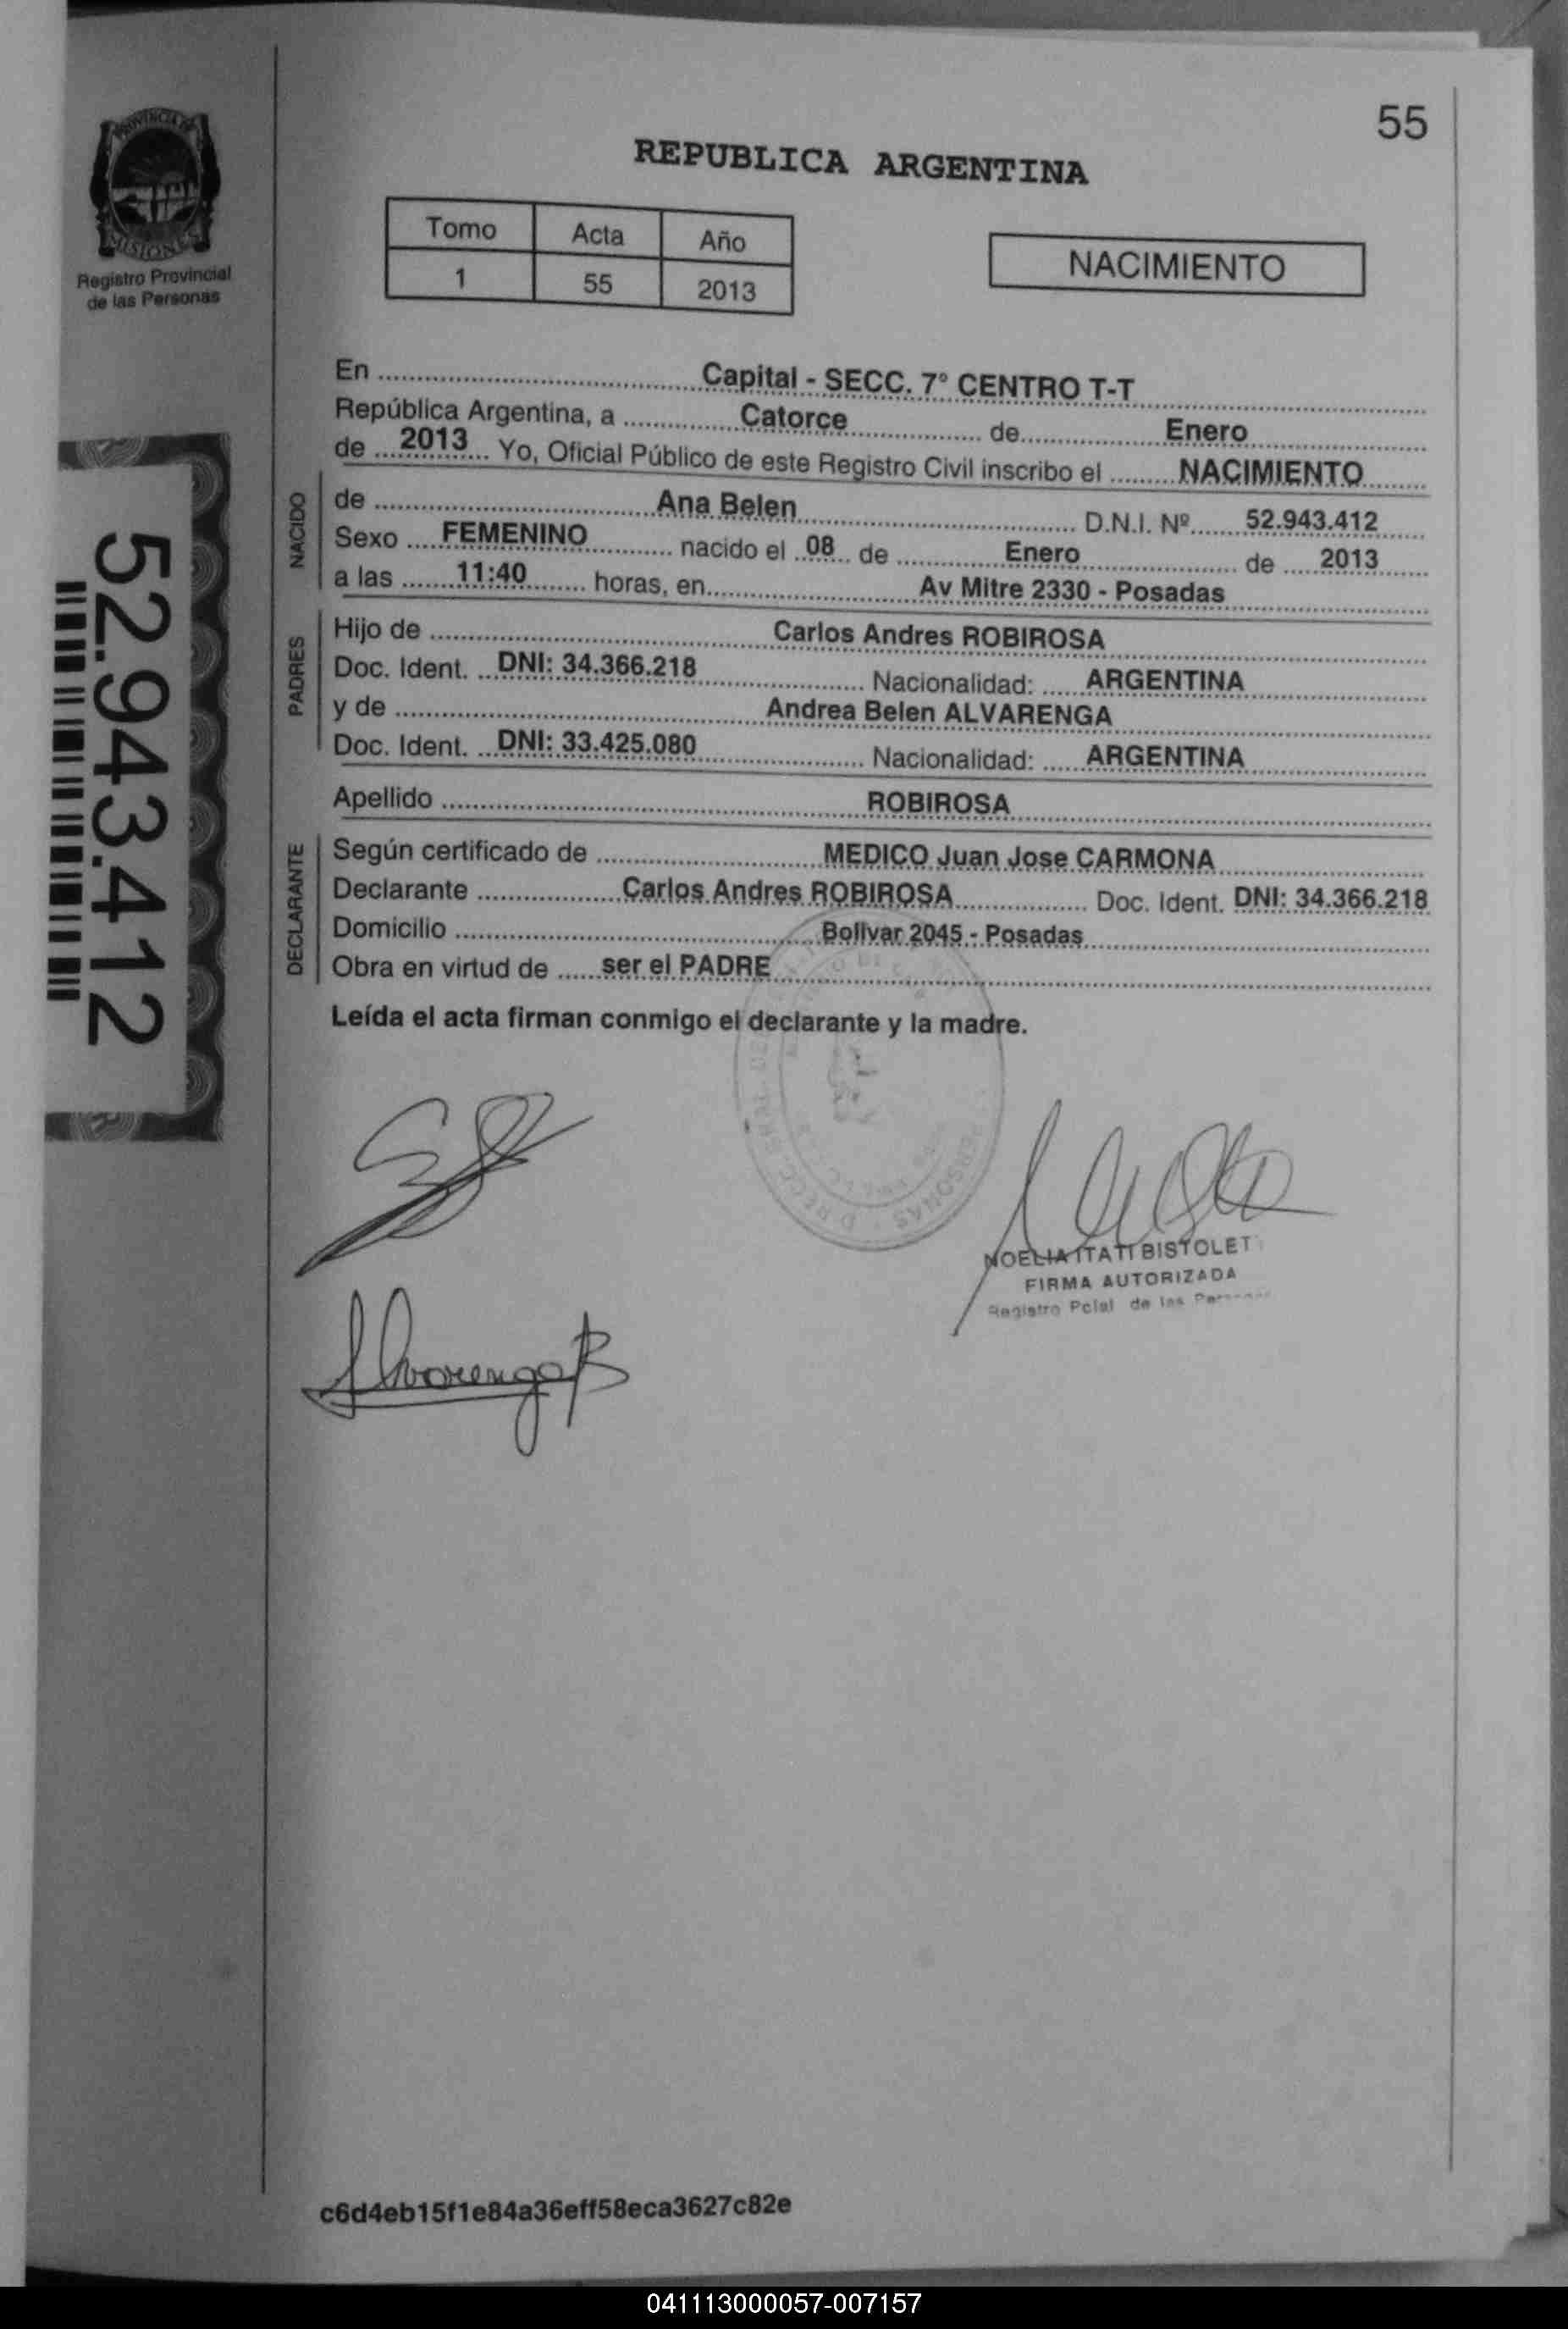 55
PROVINCIA DE
MISIONES
Registro Provincial
de las Personas
REPUBLICA ARGENTINA
Tomo Acta Año
1 55 2013
NACIMIENTO
En Capital - SECC. 7° CENTRO T-T
República Argentina, a Catorce de Enero
de 2013 Yo, Oficial Público de este Registro Civil inscribo el NACIMIENTO
NACIDO
de Ana Belen D.N.I. Nº 52.943.412
Sexo FEMENINO nacido el 08 de Enero de 2013
a las 11:40 horas, en Av Mitre 2330 - Posadas
PADRES
Hijo de Carlos Andres ROBIROSA
Doc. Ident. DNI: 34.366.218 Nacionalidad: ARGENTINA
y de Andrea Belen ALVARENGA
Doc. Ident. DNI: 33.425.080 Nacionalidad: ARGENTINA
Apellido ROBIROSA
DECLARANTE
Según certificado de MEDICO Juan Jose CARMONA
Declarante Carlos Andres ROBIROSA Doc. Ident. DNI: 34.366.218
Domicilio Bolivar 2045 - Posadas
Obra en virtud de ser el PADRE
Leída el acta firman conmigo el declarante y la madre.
52.943.412
PERSONAS
NOELIA ITATI BISTOLET
FIRMA AUTORIZADA
Registro Pcial de las
Alvarenga B
c6d4eb15f1e84a36eff58eca3627c82e
041113000057-007157